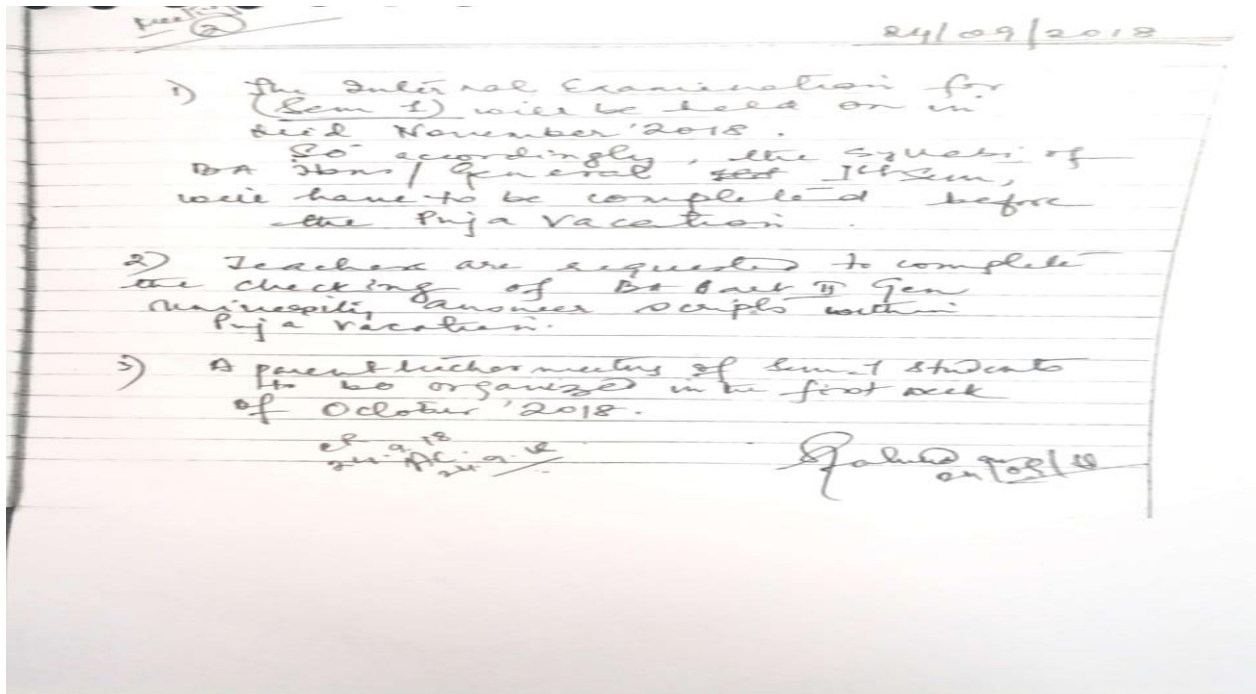 Meeting
2
24/09/2018
1) The Internal Examination for
(Sem 1) will be held on in
Mid November '2018.
So accordingly, the syllabi of
BA Hons/General Ist Sem,
will have to be completed before
the Puja Vacation.
2) Teachers are requested to complete
the checking of BA Part II Gen
University answer scripts within
Puja vacation.
3) A parent teacher meeting of Sem-I students
to be organized in the first week
of October '2018.
24.9.18
24.9.18